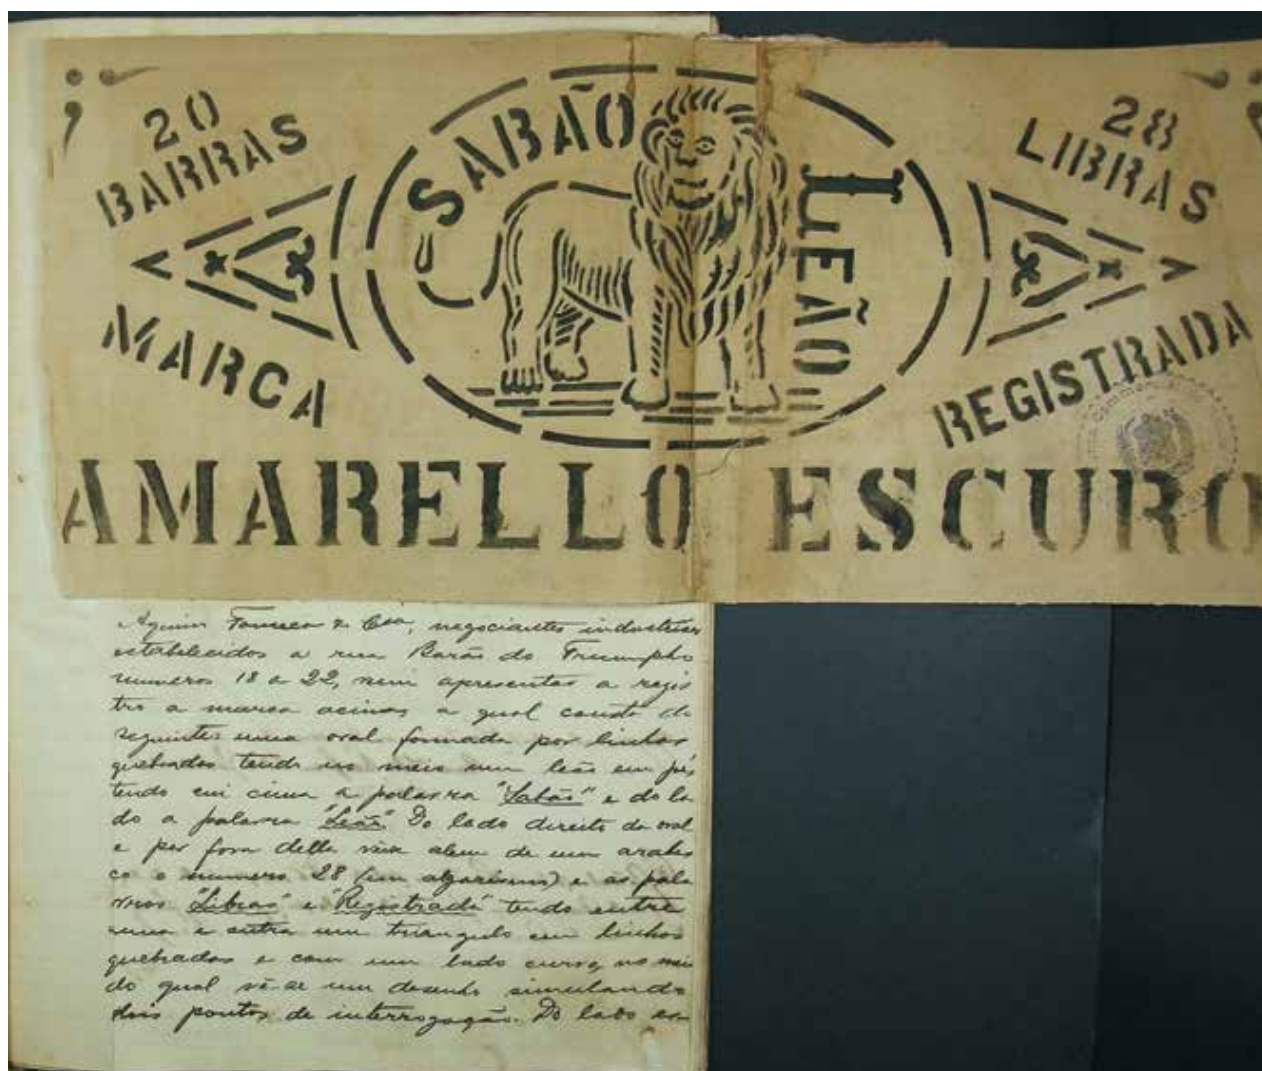 20
BARRAS
SABÃO
LEÃO
28
LIBRAS
MARCA
REGISTRADA
AMARELLO ESCURO
Commercial
Fonseca & Cia, negociantes industriaes
estabelecidos a rua Barão do Triumpho
numeros 18 a 22, vem apresentar a regis
tro a marca acima a qual consta do
seguinte: uma oval formada por linhas
quebradas tendo no meio um leão em pé,
tendo em cima a palavra "Sabão" e do la
do a palavra "Leão" Do lado direito da oval
e por fora della vêse alem de um arabes
co o numero 28 (em algarismo) e as pala
vras "Libras" e "Registrada" tendo entre
uma e outra um triangulo em linhas
quebradas e com um lado curvo, no meio
do qual vê-se um desenho simulando
dois pontos de interrogação. Do lado es